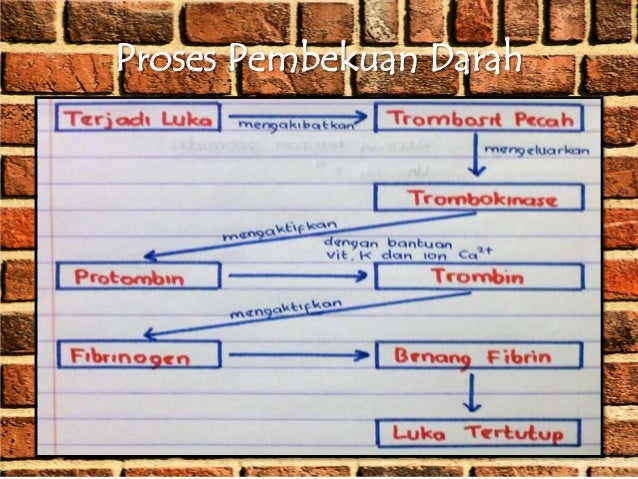 Proses Pembekuan Darah
Terjadi Luka
mengakibatkan
Trombosit Pecah
mengeluarkan
Trombokinase
mengaktifkan
dengan bantuan
vit. K dan ion Ca²⁺
Protombin
Trombin
mengaktifkan
Fibrinogen
Benang Fibrin
Luka Tertutup